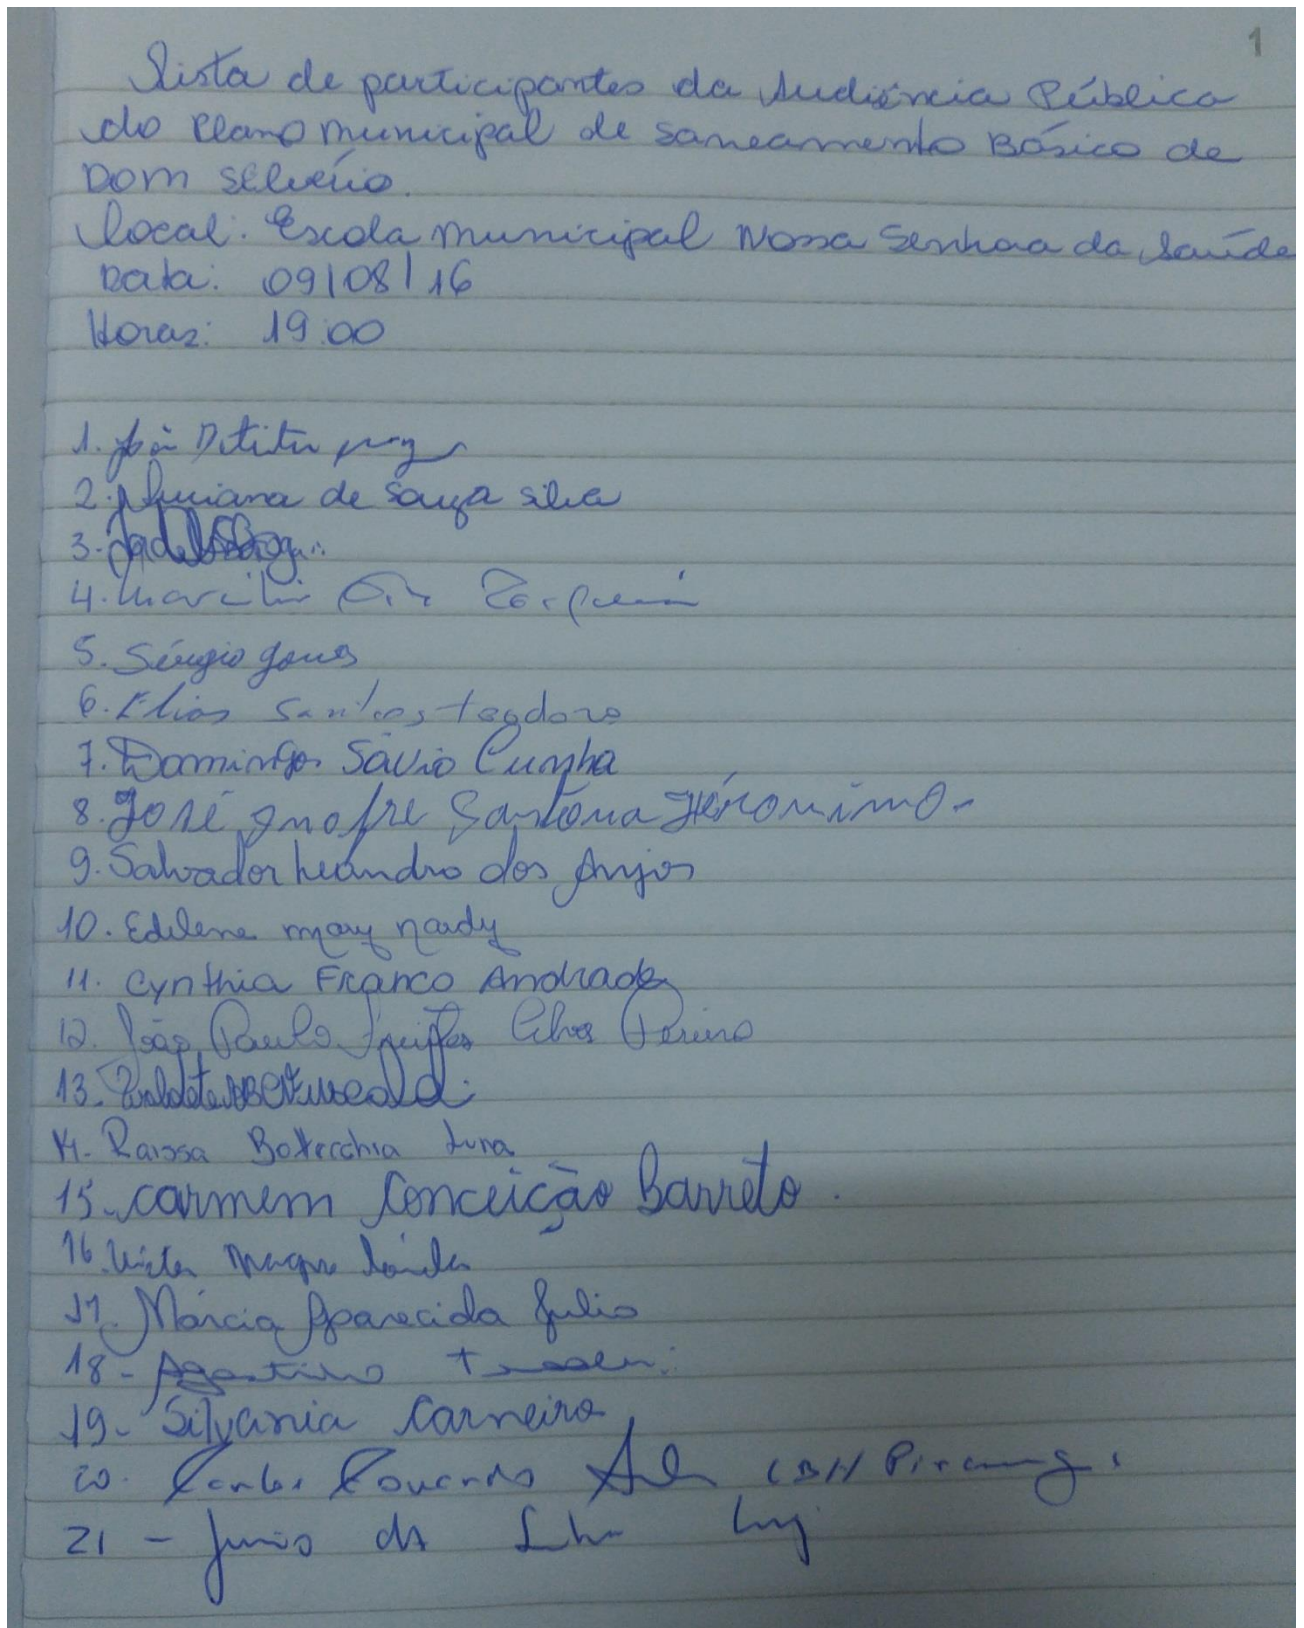 1
Lista de participantes da Audiência Pública
do Plano municipal de saneamento Básico de
Dom Silvério.
Local: Escola municipal Nossa Senhora da Saúde
Data: 09/08/16
Horas: 19:00
1.
2. Luciana de Souza Silva
3.
4.
5. Sérgio Gomes
6. Elias Santos teodoro
7. Domingos Sávio Cunha
8. José Onofre Santana Jerônimo.
9. Salvador Leandro dos Anjos
10. Edilene mary nardy
11. Cynthia Franco Andrade
12. João Paulo Alves Pereira
13.
14. Raissa Bottecchia Luna
15. Carmem Conceição Barreto.
16.
17. Márcia Aparecida Julio
18 - Agostinho
19 - Silvania Carneiro
20. Carlos Eduardo CBH Piranga
21 - Junio da Silva